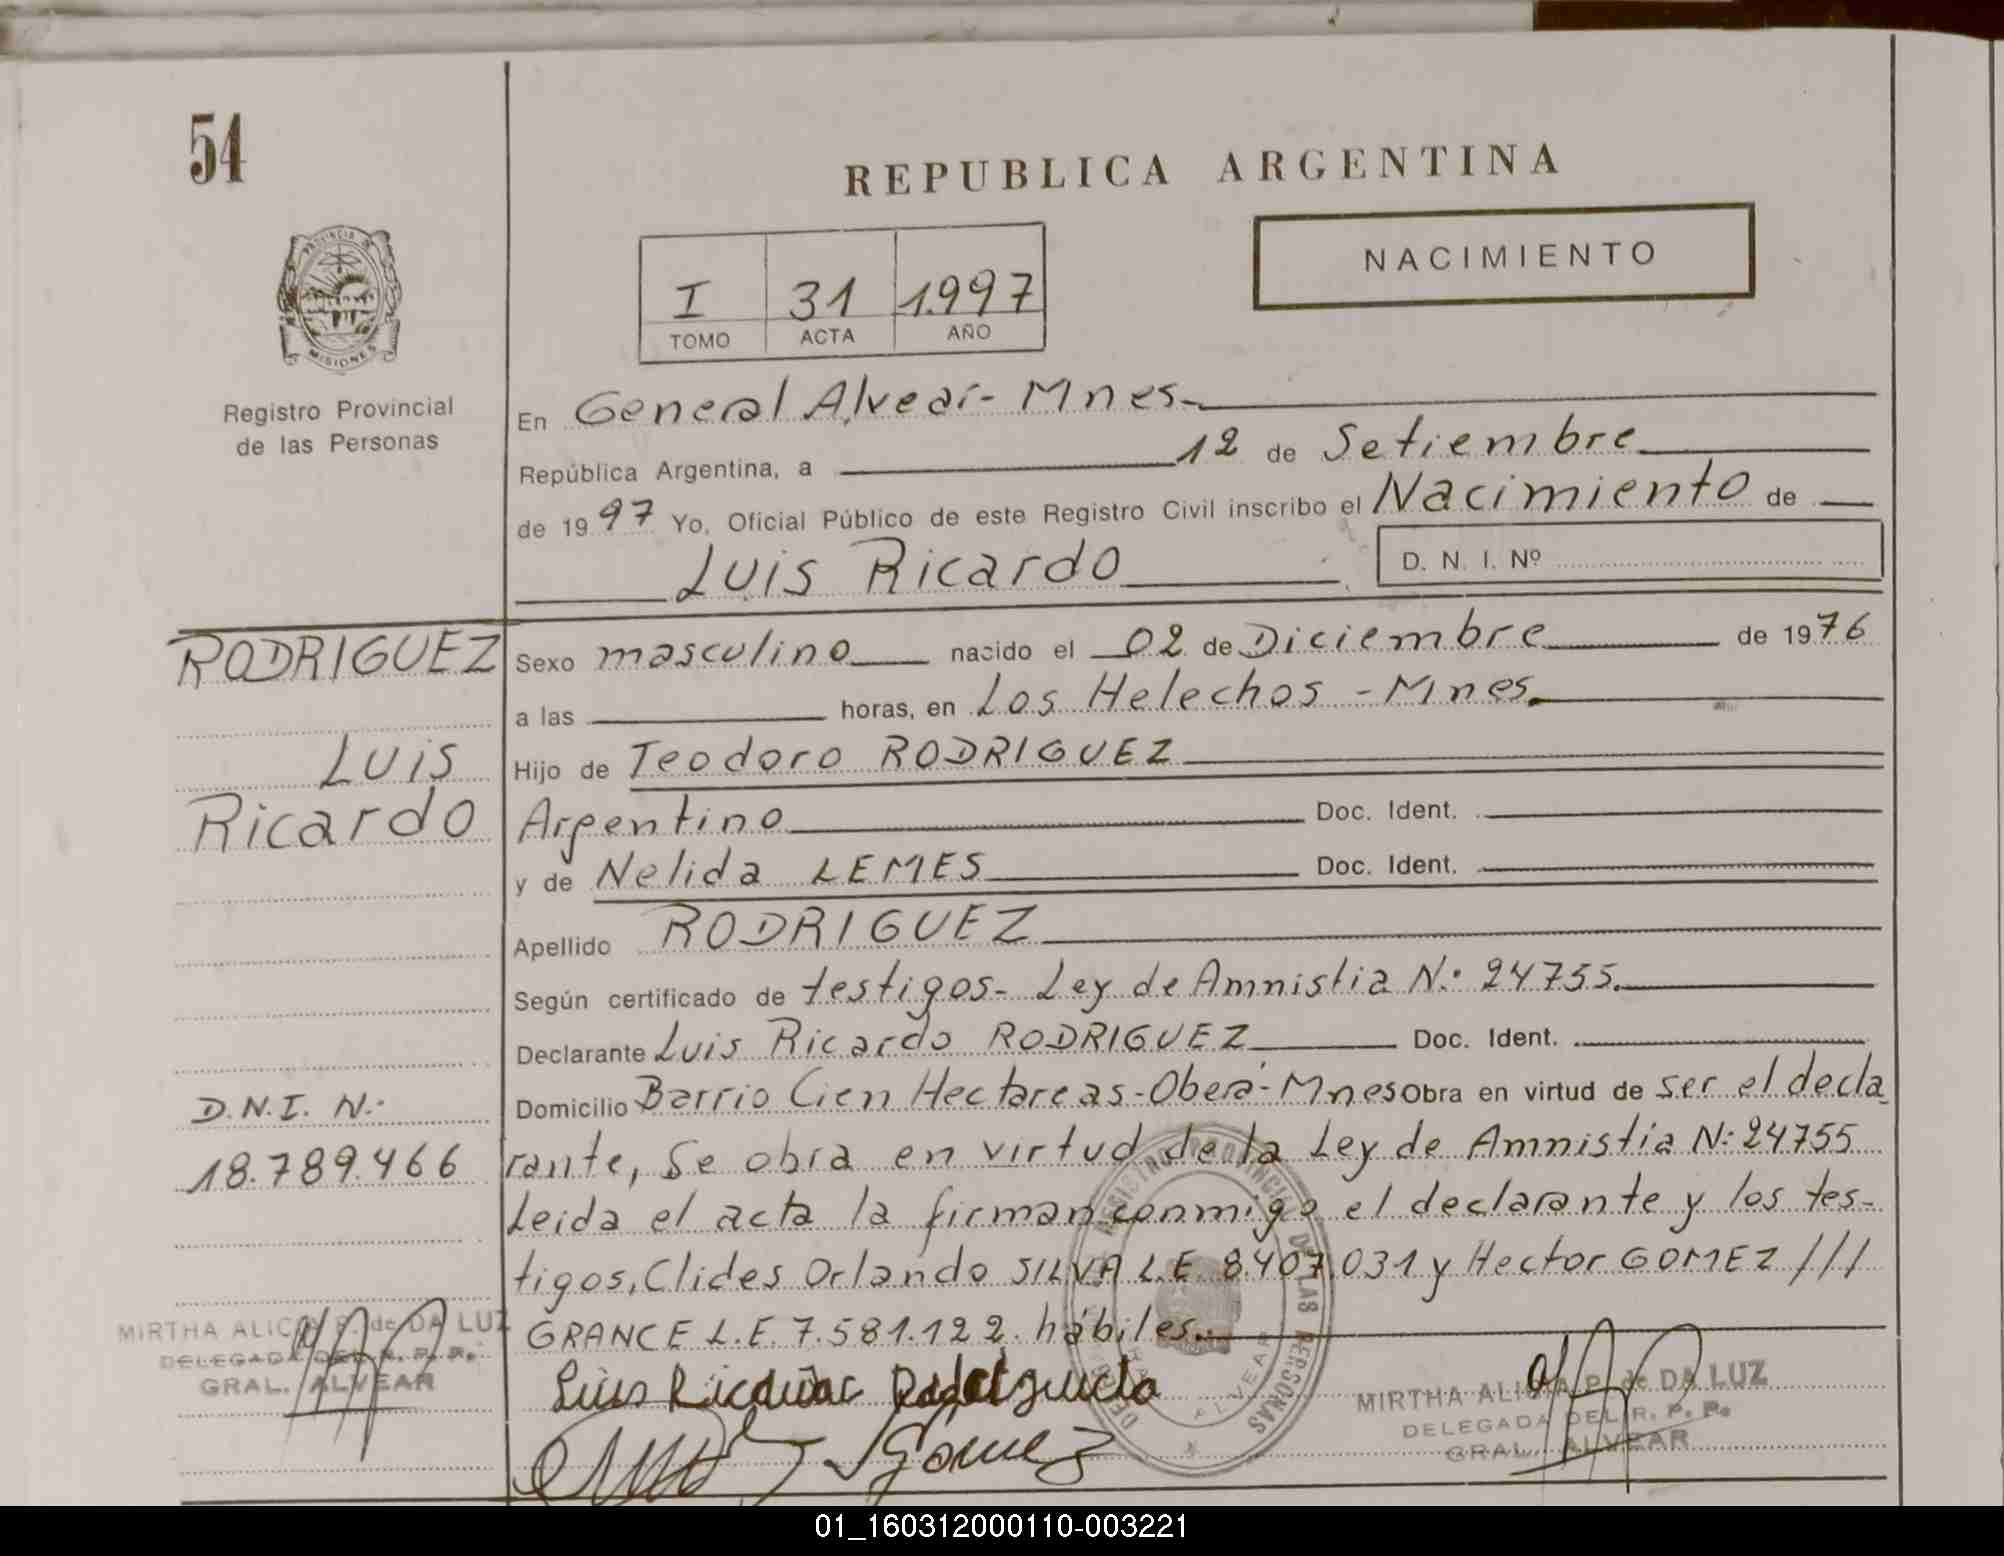 54
REPUBLICA ARGENTINA
NACIMIENTO
I 31 1.997
TOMO ACTA AÑO
PROVINCIA DE
MISIONES
Registro Provincial
de las Personas
En General Alvear - Mnes.
República Argentina, a 12 de Setiembre
de 19 97 Yo, Oficial Público de este Registro Civil inscribo el Nacimiento de
Luis Ricardo
D. N. I. Nº
RODRIGUEZ
Luis
Ricardo
D.N.I. N.:
18.789.466
Sexo masculino nacido el 02 de Diciembre de 1976
a las horas, en Los Helechos - Mnes.
Hijo de Teodoro RODRIGUEZ
Argentino Doc. Ident.
y de Nelida LEMES Doc. Ident.
Apellido RODRIGUEZ
Según certificado de testigos - Ley de Amnistia N.: 24755.
Declarante Luis Ricardo RODRIGUEZ Doc. Ident.
Domicilio Barrio Cien Hectareas - Oberá - Mnes Obra en virtud de ser el decla
rante, Se obra en virtud de la Ley de Amnistia N: 24755
Leida el acta la firman conmigo el declarante y los tes-
tigos, Clides Orlando SILVA L.E. 8.407.031 y Hector GOMEZ ///
GRANCE L.E. 7.581.122. hábiles.
MIRTHA ALICIA P. de DA LUZ
DELEGADA DEL R. P. P.
GRAL. ALVEAR
Luis Ricardo
Gomez
REGISTRO PROVINCIAL DE LAS PERSONAS
ALVEAR
MIRTHA ALICIA P. de DA LUZ
DELEGADA DEL R. P. P.
GRAL. ALVEAR
01_160312000110-003221